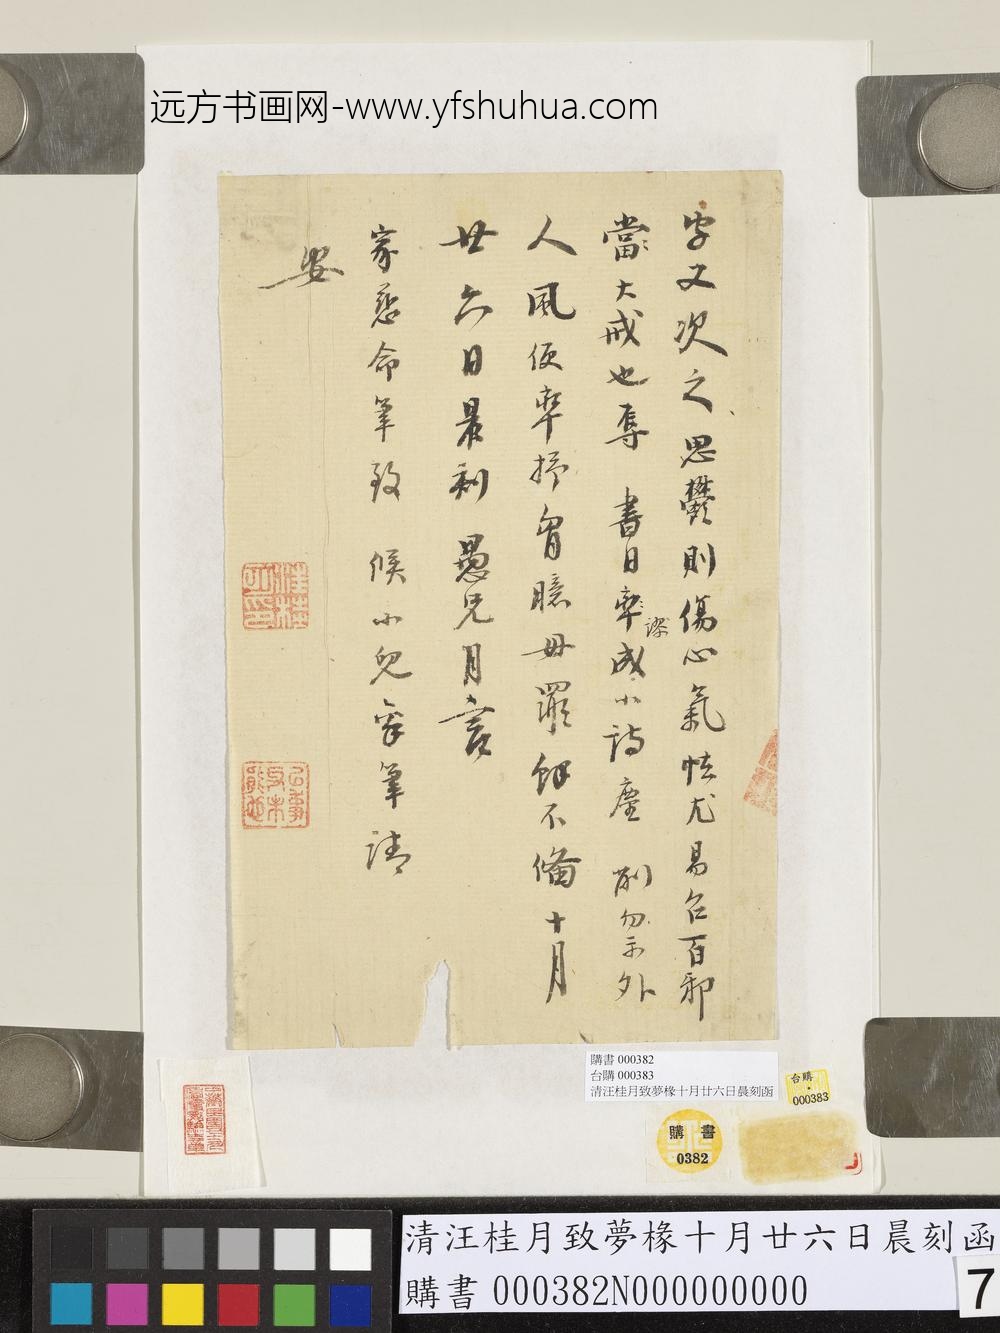 远方书画网-www.yfshuhua.com
字又次之思鬱則傷心氣怯尤易召百邪
當大戒也辱 書日率成小詩塵 削勿示外
謬
人風便率抒胷臆毋罪餘不備十月
廿六日晨刻 愚兄月言
家慈命筆致 候小兒 筆請
安
購書 000382
台購 000383
清汪桂月致夢椽十月廿六日晨刻函
台購
000383
購 書
0382
清汪桂月致夢椽十月廿六日晨刻函
購書 000382N000000000
7